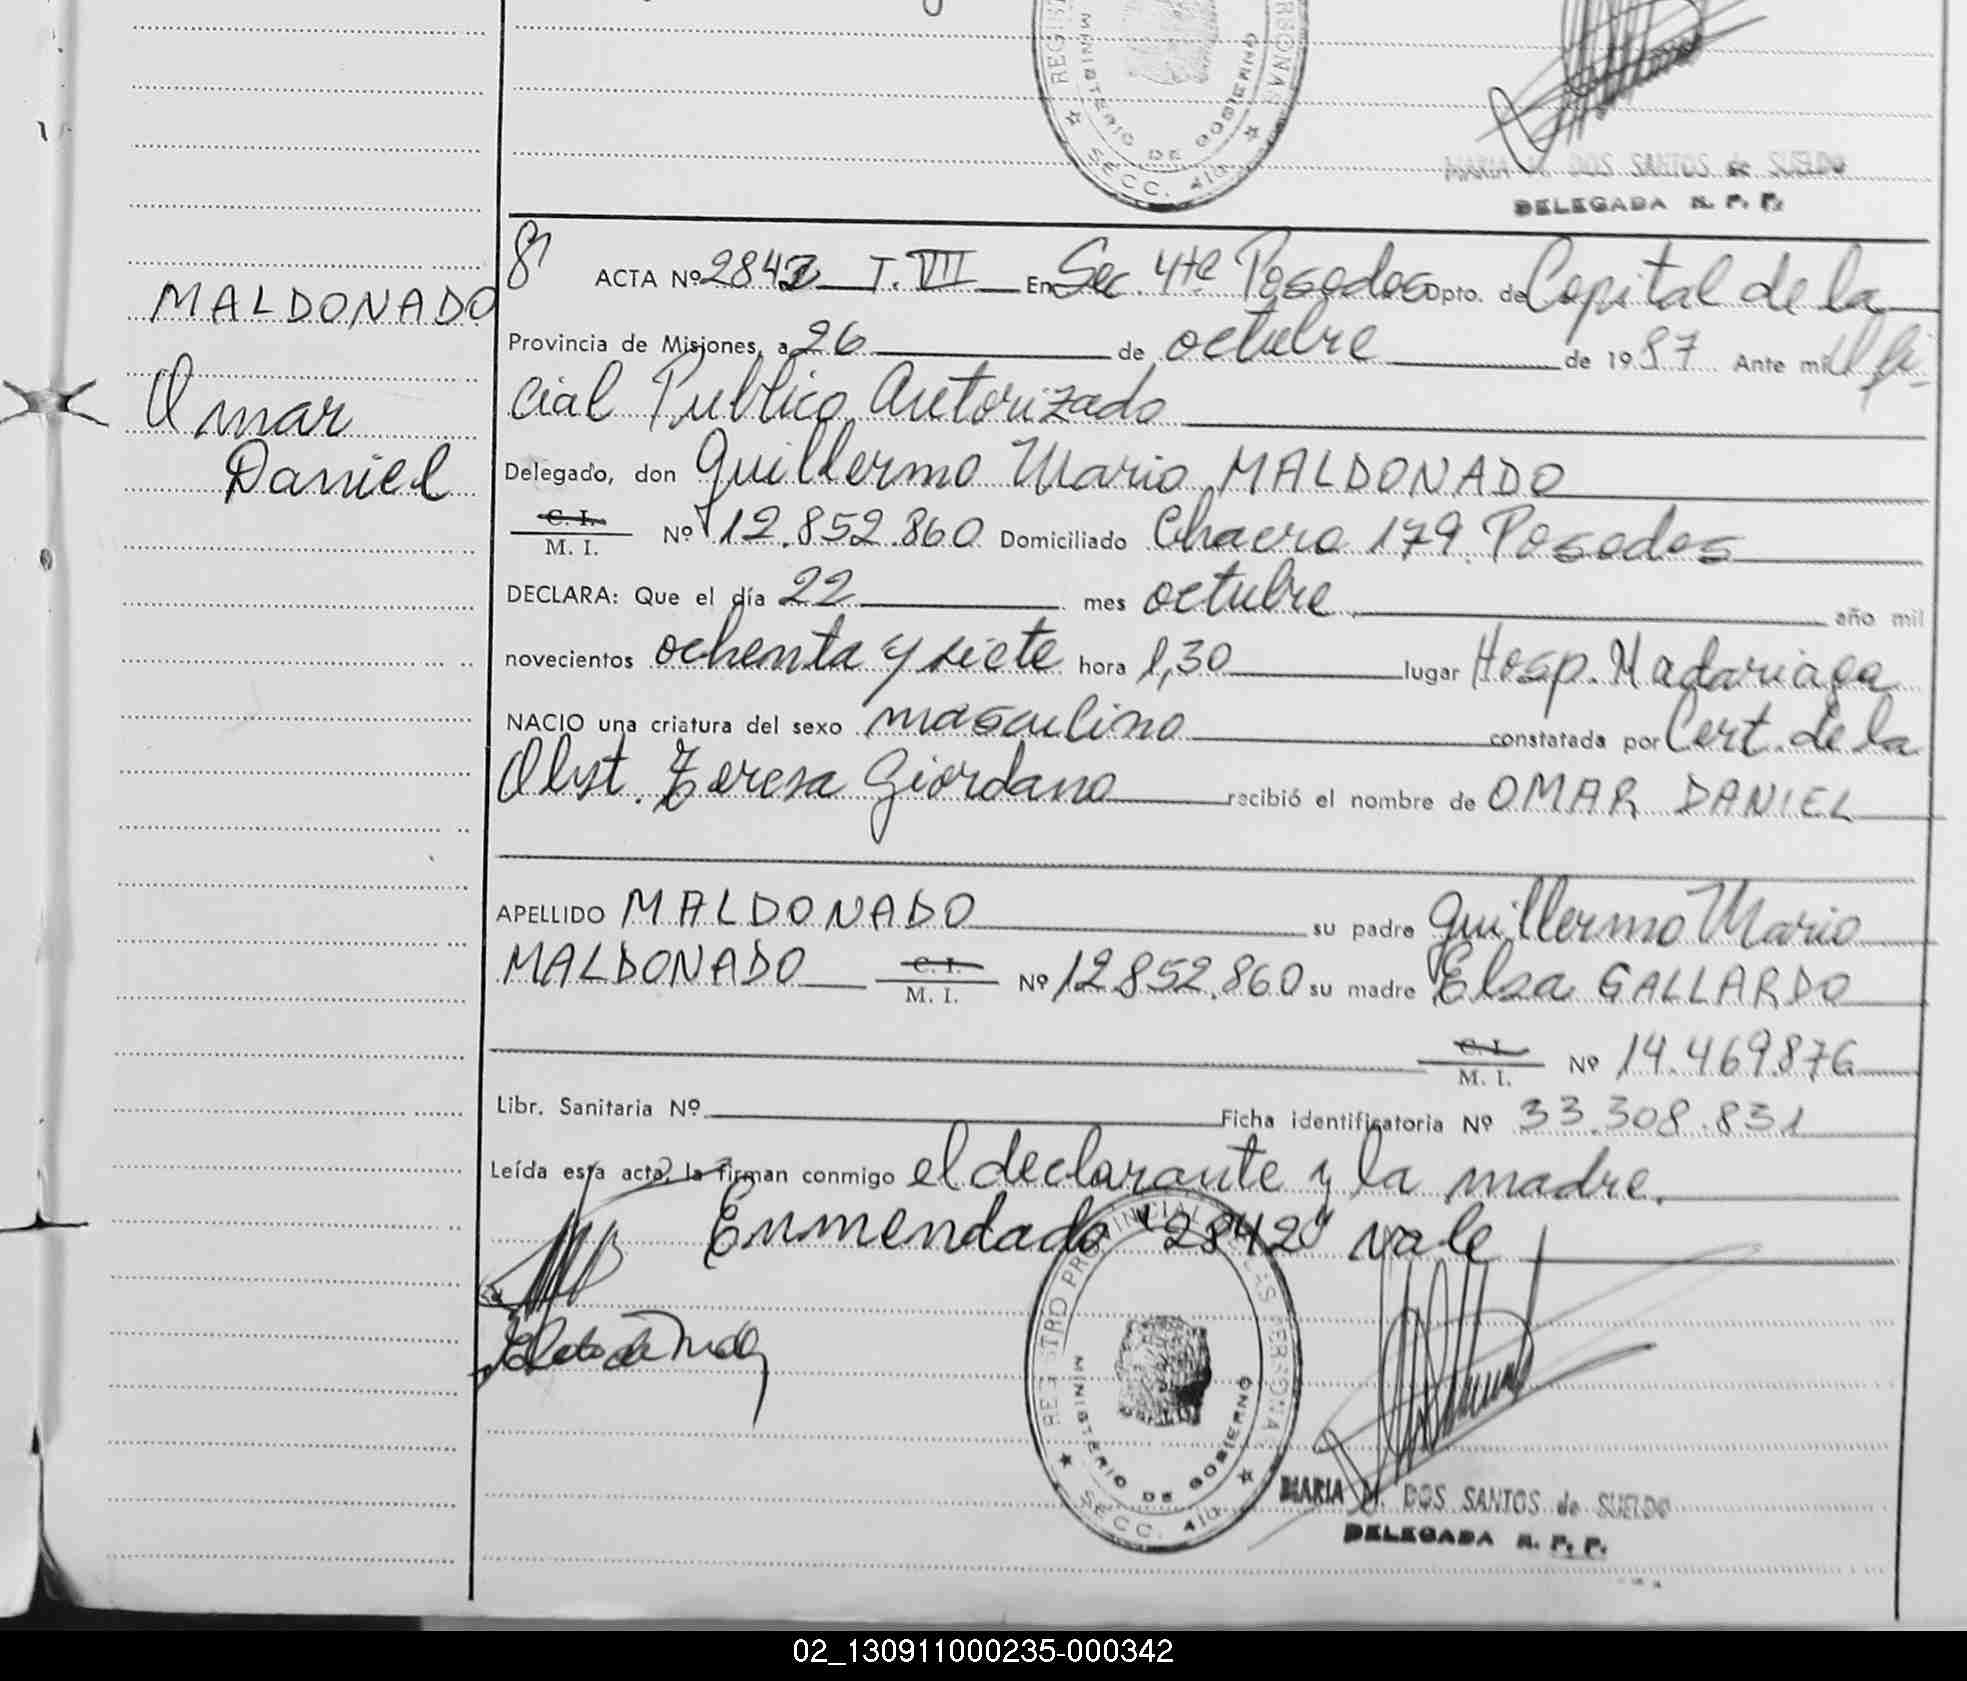 REGIS
MINISTERIO DE GOBIERNO
RSONAS
SECC. 4ta
MARIA M. DOS SANTOS de SUELDO
DELEGADA R. P. P.
MALDONADO
Omar
Daniel
ACTA Nº 2842 T. VII En Sec. 4ta Posadas Dpto. de Capital de la
Provincia de Misiones, a 26 de octubre de 1987 Ante mi Ofi-
cial Publico Autorizado
Delegado, don Guillermo Mario MALDONADO
C. I. M. I. Nº 12.852.860 Domiciliado Chacra 179 Posadas
DECLARA: Que el día 22 mes octubre año mil
novecientos ochenta y siete hora 1,30 lugar Hosp. Madariaga
NACIO una criatura del sexo masculino constatada por Cert. de la
Obst. Teresa Giordano recibió el nombre de OMAR DANIEL
APELLIDO MALDONADO su padre Guillermo Mario
MALDONADO C. I. M. I. Nº 12.852.860 su madre Elsa GALLARDO
C. I. M. I. Nº 14.469876
Libr. Sanitaria Nº Ficha identificatoria Nº 33.308.831
Leída esta acta, la firman conmigo el declarante y la madre.
Enmendado "2842" vale
REGISTRO PROVINCIAL DE LAS PERSONAS
MINISTERIO DE GOBIERNO
SECC. 4ta
MARIA M. DOS SANTOS de SUELDO
DELEGADA R. P. P.
02_130911000235-000342